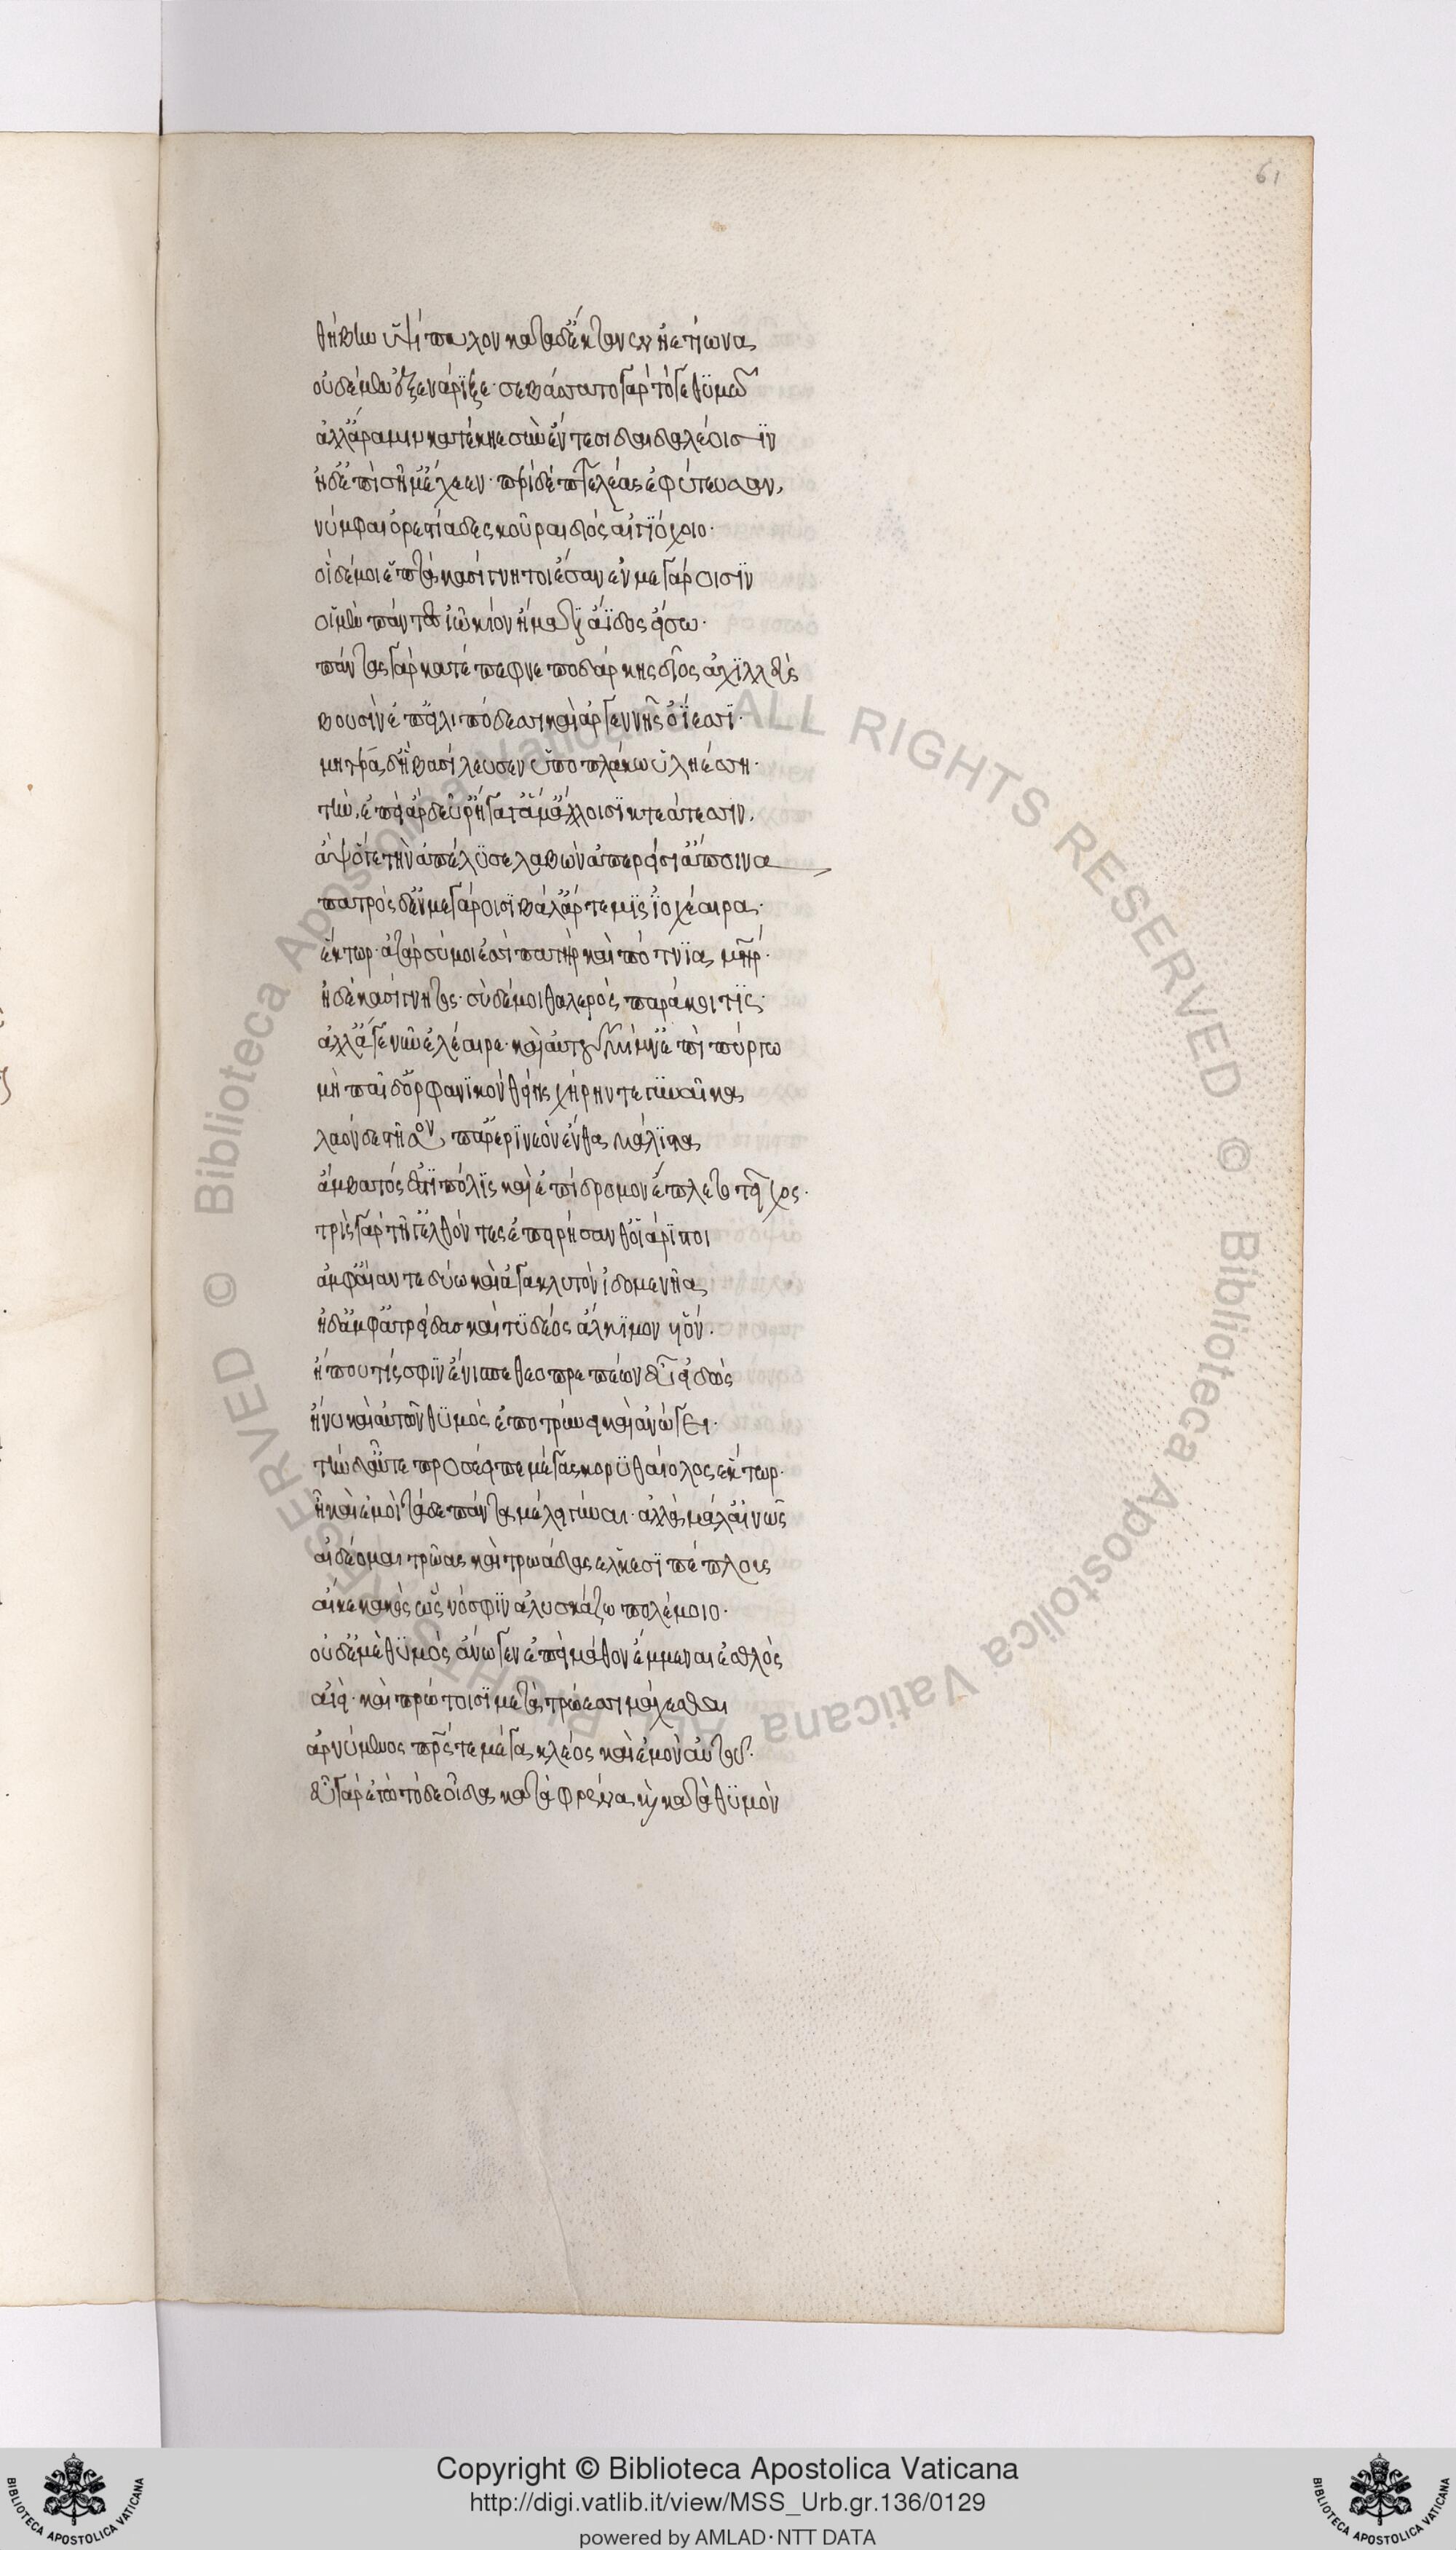 61
θήβην ὑψίπυλον κατὰ δ' ἔκτανεν ἠετίωνα
οὐδέ μιν ἐξενάριξε· σεβάσσατο γὰρ τόγε θυμῶ
ἀλλ' ἄρα μιν κατέκηε σὺν ἔντεσι δαιδαλέοισιν
ἠδ' ἐπὶ σῆμ' ἔχεεν· περὶ δὲ πτελέας ἐφύτευσαν,
νύμφαι ὀρεστιάδες κοῦραι διὸς αἰγιόχοιο·
οἳ δέ μοι ἑπτὰ κασίγνητοι ἔσαν ἐν μεγάροισιν
οἱ μὲν πάντες ἰῶ κίον ἤματι ἄϊδος εἴσω·
πάντας γὰρ κατέπεφνε ποδάρκης δῖος ἀχιλλεὺς
βουσὶν ἐπ' εἰλιπόδεσσι καὶ ἀργεννῆς ὀΐεσσι·
μητέρα δ' ἣ βασίλευσεν ὑπὸ πλάκω ὑληέσση·
τὴν, ἐπεὶ ἂρ δεῦρ' ἤγαγ' ἅμ' ἄλλοισι κτεάτεσσιν,
ἂψ ὅγε τὴν ἀπέλυσε λαβὼν ἀπερείσι' ἄποινα
πατρὸς δ' ἐν μεγάροισι βάλ' ἄρτεμις ἰοχέαιρα·
ἕκτορ· ἀτὰρ σύ μοι ἐσσὶ πατὴρ καὶ πότνια μήτηρ·
ἠδὲ κασίγνητος· σὺ δέ μοι θαλερὸς παρακοίτις·
ἀλλ' ἄγε νῦν ἐλέαιρε· καὶ αὐτοῦ μίμν' ἐπὶ πύργω
μὴ παῖδ' ὀρφανικὸν θείης χήρην τε γυναῖκα
λαὸν δὲ στῆσον, παρ' ἐρινεὸν ἔνθα μάλιστα
ἀμβατός ἐστι πόλις καὶ ἐπίδρομον ἔπλετο τεῖχος·
τρὶς γὰρ τῆ γ' ἐλθόντες ἐπειρήσανθ' οἱ ἄριστοι
ἀμφ' αἴαντε δύω καὶ ἀγακλυτὸν ἰδομενῆα
ἠδ' ἀμφ' ἀτρείδας καὶ τυδέος ἄλκιμον υἱόν·
ἤ που τίς σφιν ἔνισπε θεοπροπέων εὖ εἰδὼς
ἤ νυ καὶ αὐτῶν θυμὸς ἐποτρύνει καὶ ἀνώγει·
τὴν δ' αὖτε προσέειπε μέγας κορυθαίολος ἕκτωρ·
ἦ καὶ ἐμοὶ τάδε πάντα μέλει γύναι· ἀλλὰ μάλ' αἰνῶς
αἰδέομαι τρῶας καὶ τρωάδας ἑλκεσιπέπλους
αἴ κε κακὸς ὣς νόσφιν ἀλυσκάζω πολέμοιο·
οὐδ' ἐμὲ θυμὸς ἄνωγεν ἐπεὶ μάθον ἔμμεναι ἐσθλὸς
αἰεί· καὶ πρώτοισι μετὰ τρώεσσι μάχεσθαι
ἀρνύμενος πατρός τε μέγα κλέος καὶ ἐμὸν αὐτοῦ·
εὖ γὰρ ἐγὼ τόδε οἶδα κατὰ φρένα καὶ κατὰ θυμὸν
Copyright © Biblioteca Apostolica Vaticana
http://digi.vatlib.it/view/MSS_Urb.gr.136/0129
powered by AMLAD·NTT DATA